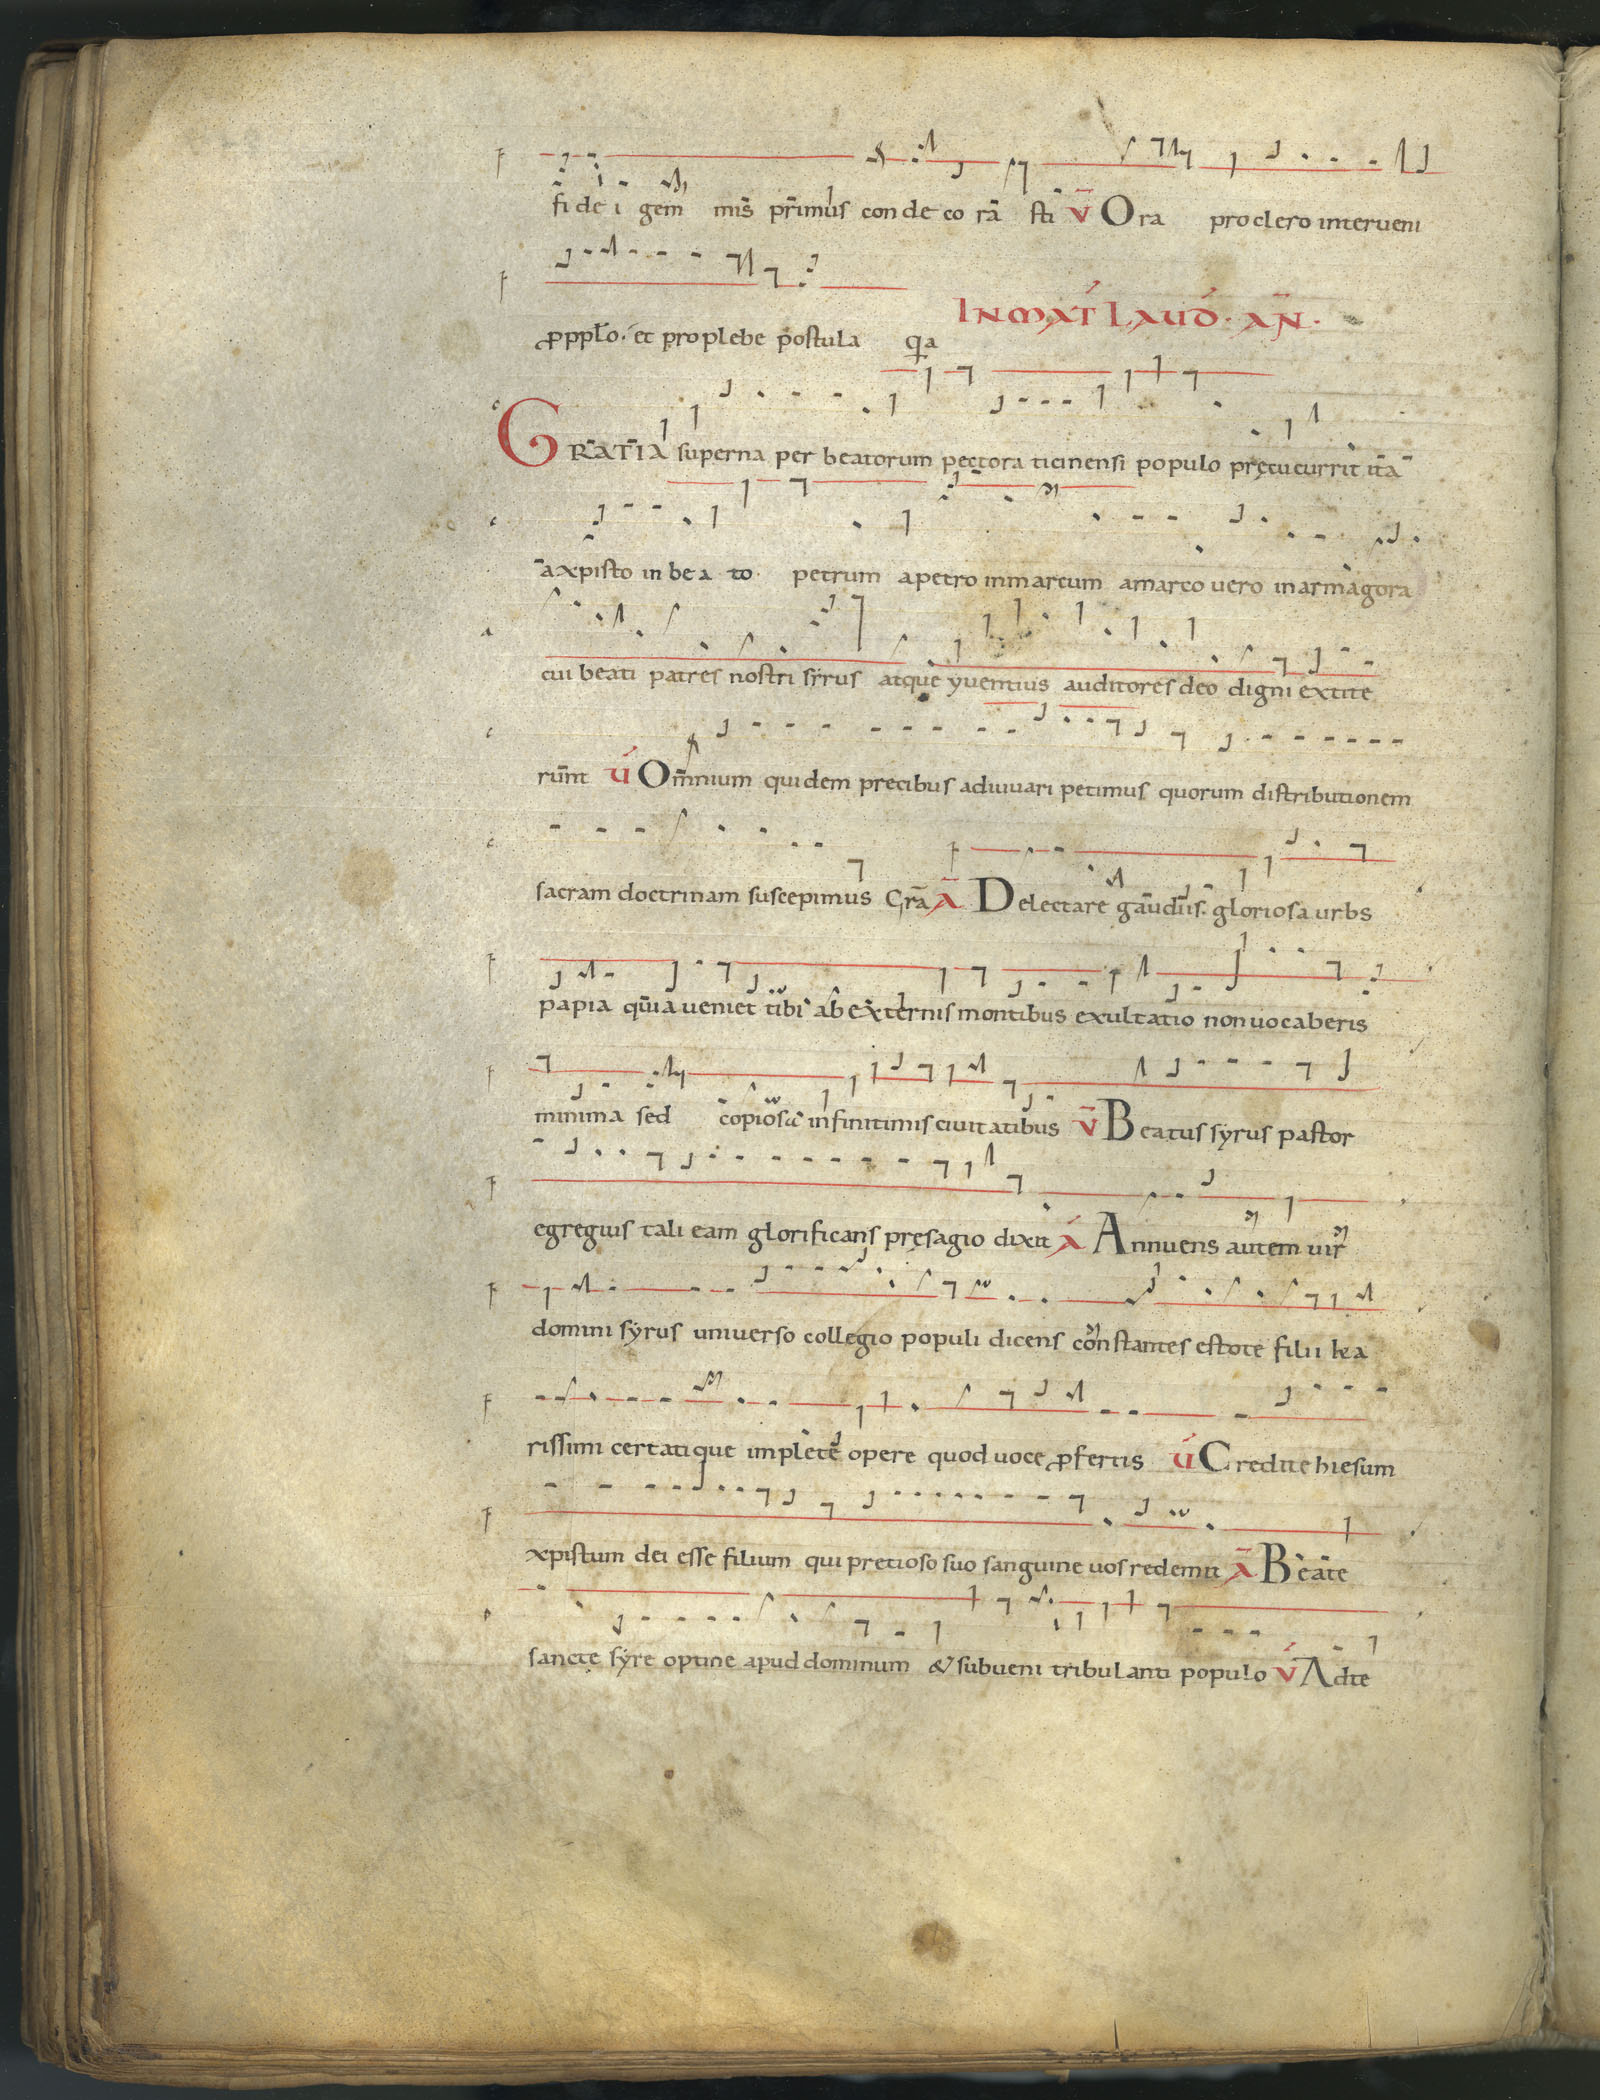 fi de i gem mis primus con de co ra sti v Ora pro clero interueni
ꝓ ppl̄o. et pro plebe postula q̄a
IN MAT LAUD. AN.
GRATIA superna per beatorum pectora ticinensi populo pręcucurrit ita
a xpisto in bea to petrum a petro in marcum a marco uero in armagora
cui beati patres nostri syrus atque yuentius auditores deo digni extite
runt v Omnium quidem precibus adiuuari petimus quorum distributionem
sacram doctrinam suscepimus Gra A Delectare gaudiis. gloriosa urbs
papia quia ueniet tibi ab externis montibus exultatio non uocaberis
minima sed copiosa in finitimis ciuitatibus v Beatus syrus pastor
egregius tali eam glorificans pręsagio dixit A Annuens autem uir
domini syrus uniuerso collegio populi dicens constantes estote filii ka
rissimi certatique implete opere quod uoce ꝓfertis v Credite hiesum
xpistum dei esse filium qui pretioso suo sanguine uos redemit A Beate
sancte syre optine apud dominum & subueni tribulanti populo v Ad te